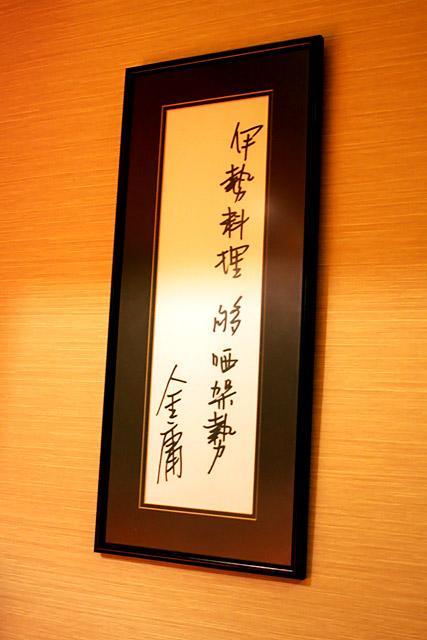 伊勢料理 够晒架勢
金庸